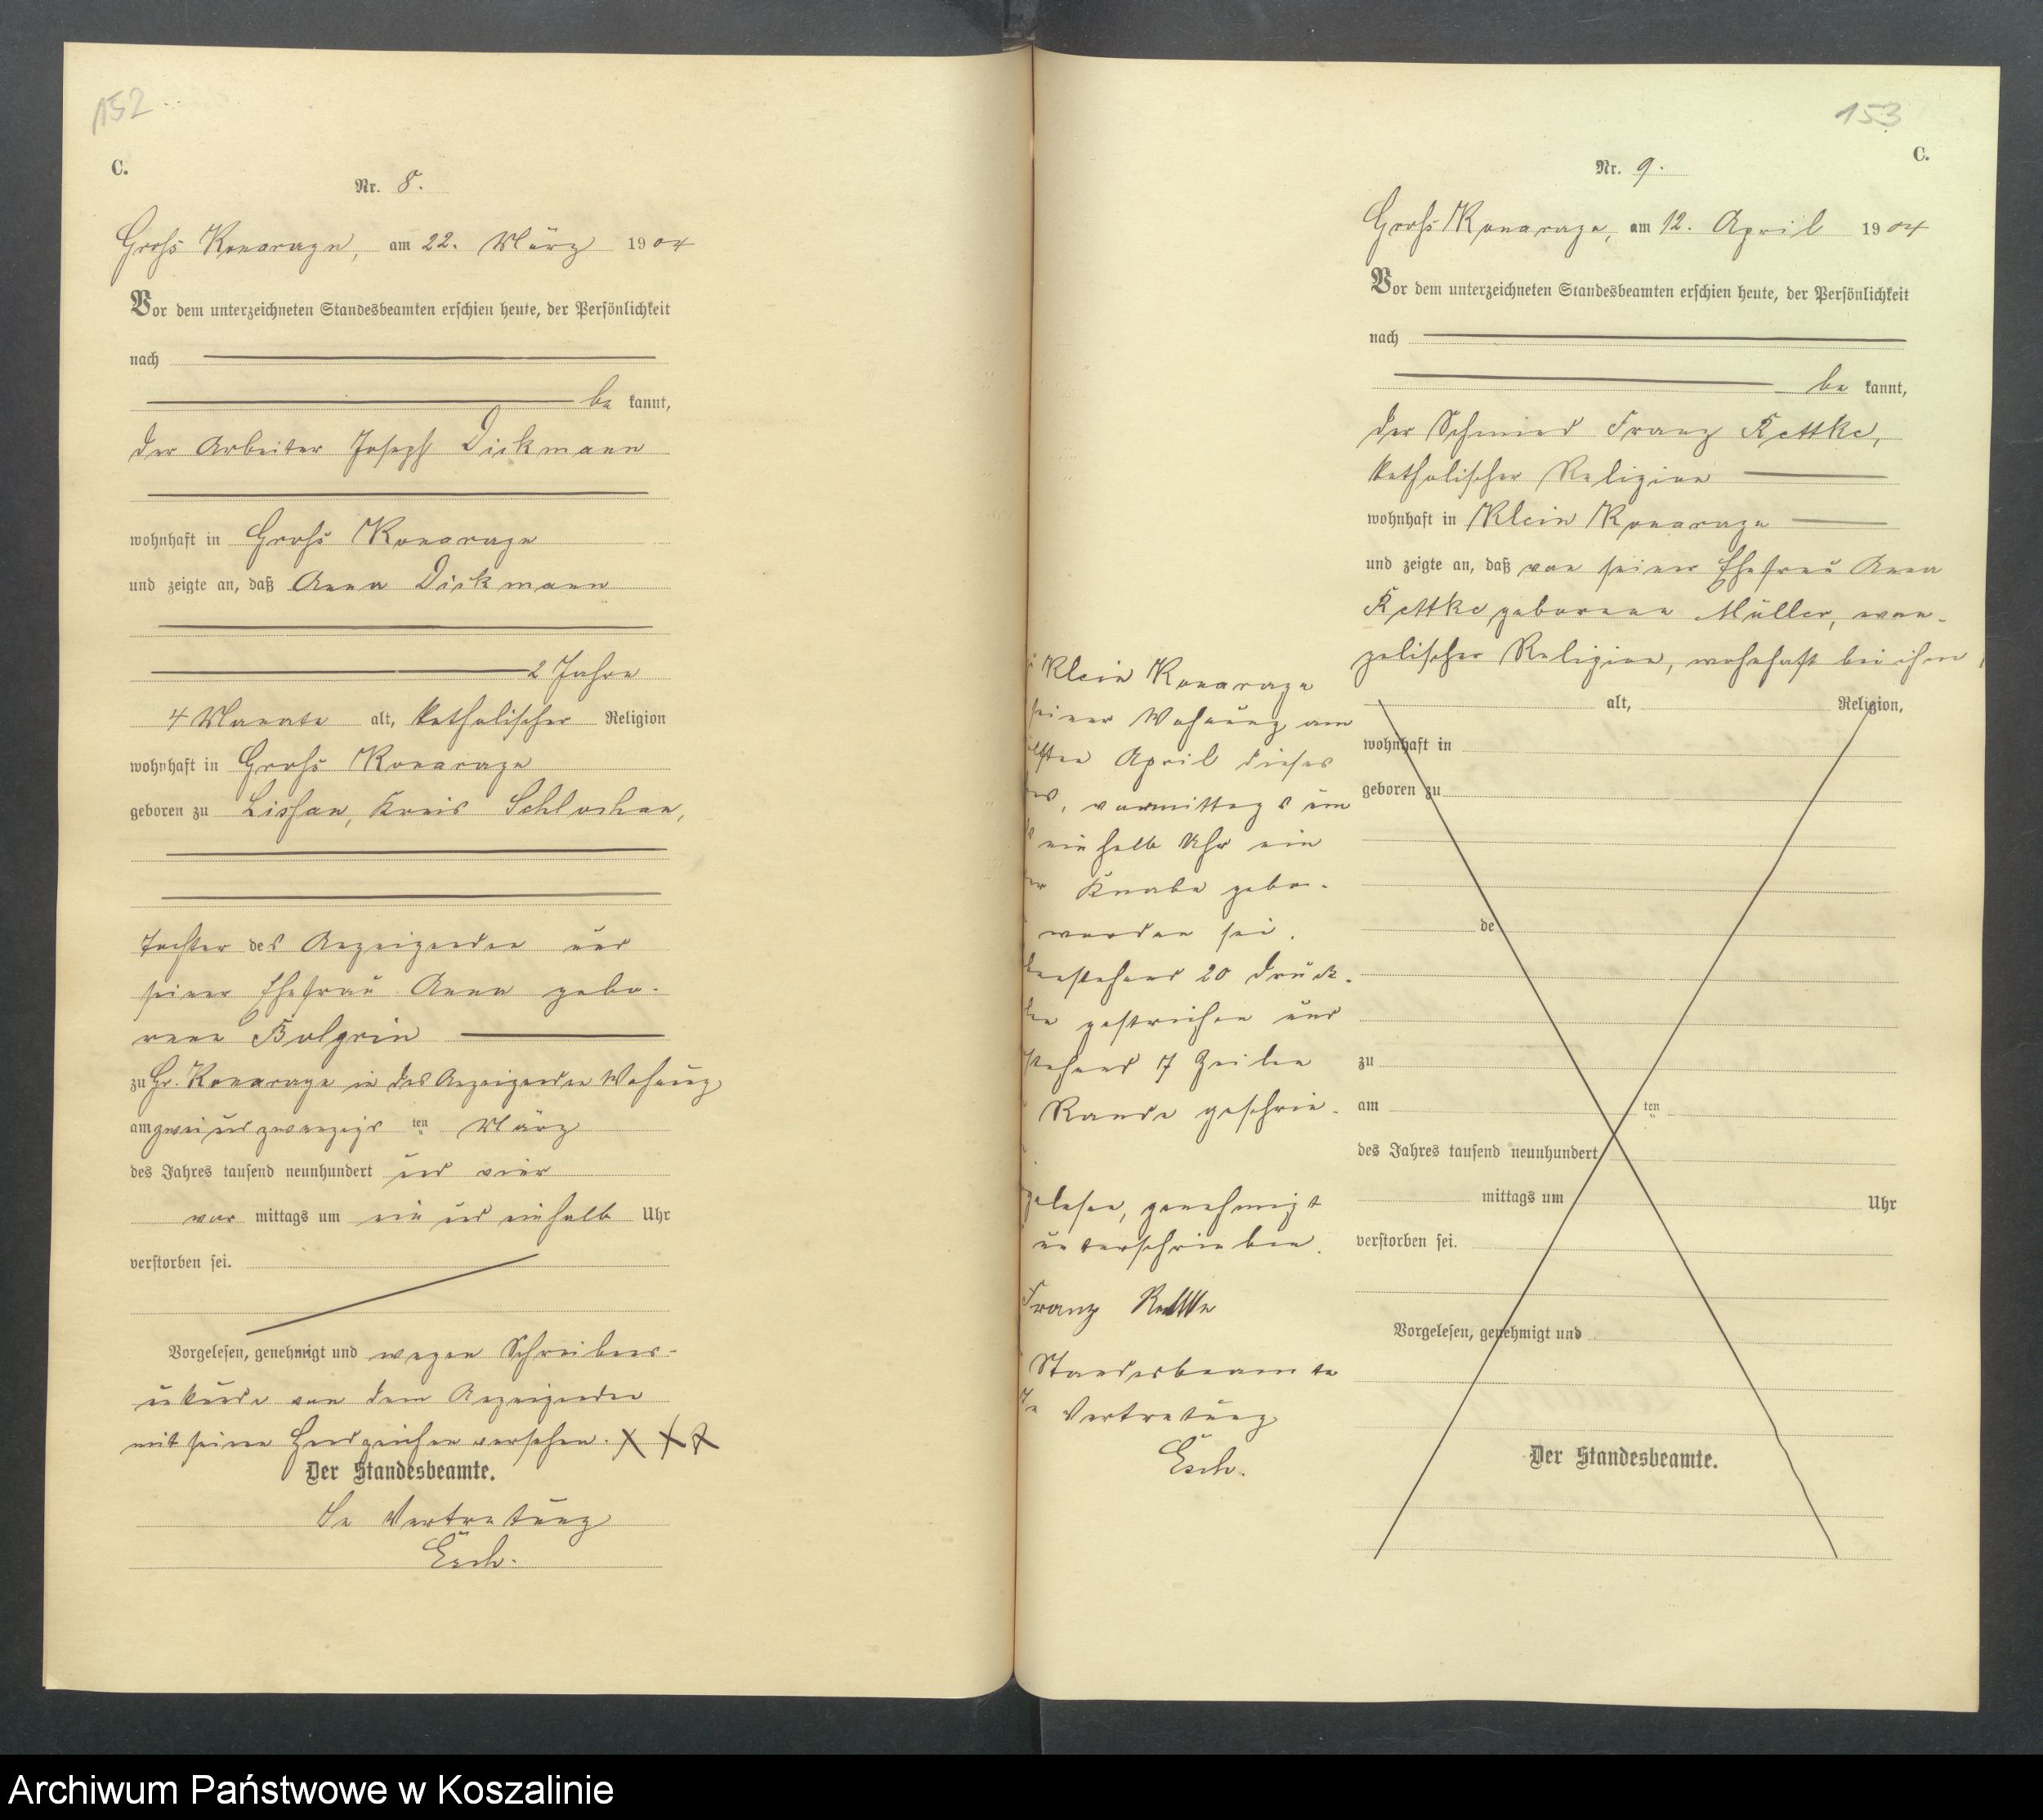 152
C.
Nr. 8.
Groß Konarzyn, am 22. März 1904
Vor dem unterzeichneten Standesbeamten erschien heute, der Persönlichkeit
nach
be kannt,
der Arbeiter Joseph Dickmann
wohnhaft in Groß Konarzyn
und zeigte an, daß Anna Dickmann
2 Jahre
4 Monate alt, katholischer Religion
wohnhaft in Groß Konarzyn
geboren zu Lissau, Kreis Schlochau,
Tochter des Anzeigenden und
seiner Ehefrau Anna gebo-
rene
zu Gr. Konarzyn in des Anzeigenden Wohnung
am zwei und zwanzigsten März
des Jahres tausend neunhundert und vier
vor mittags um ein und einhalb Uhr
verstorben sei.
Vorgelesen, genehmigt und wegen Schreibens-
unkunde von dem Anzeigenden
mit seinen Handzeichen versehen. X X X
Der Standesbeamte.
In Vertretung
Esch.
153
C.
Nr. 9.
Groß Konarzyn, am 12. April 1904
Vor dem unterzeichneten Standesbeamten erschien heute, der Persönlichkeit
nach
be kannt,
der Schmied Franz Rettke,
katholischer Religion
wohnhaft in Klein Konarzyn
und zeigte an, daß von seiner Ehefrau Anna
Rettke geborenen Müller, evan-
gelischer Religion, wohnhaft bei ihm
alt, Religion,
wohnhaft in
geboren zu
de
zu
am ten
des Jahres tausend neunhundert
mittags um Uhr
verstorben sei.
Vorgelesen, genehmigt und
Der Standesbeamte.
Klein Konarzyn
seiner Wohnung am
lften April dieses
vormittags um
einhalb Uhr ein
Knabe gebo-
worden sei.
enstehend 20 Druck-
gestrichen und
stehend 17 Zeilen
Rande geschrie-
gelesen, genehmigt
unterschrieben.
Franz Rettke
Standesbeamte
In Vertretung
Esch.
Archiwum Państwowe w Koszalinie